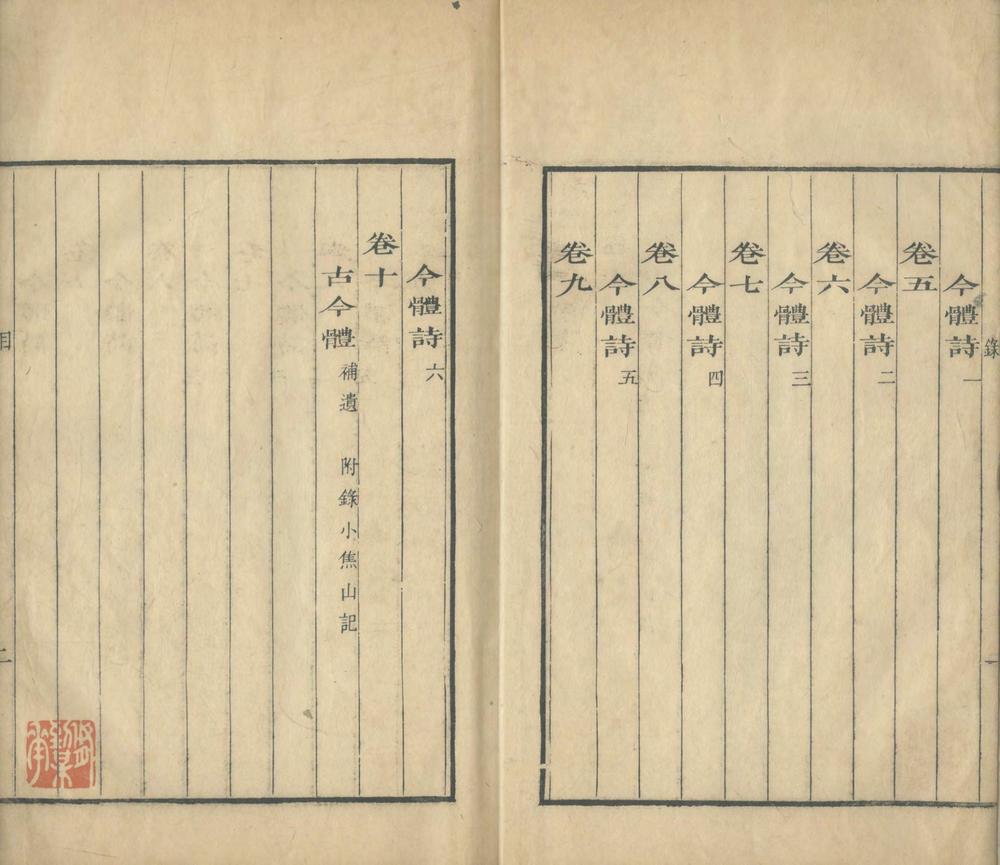 錄
今體詩一
卷五
今體詩二
卷六
今體詩三
卷七
今體詩四
卷八
今體詩五
卷九
一
今體詩六
卷十
古今體補遺 附錄小焦山記
目
二